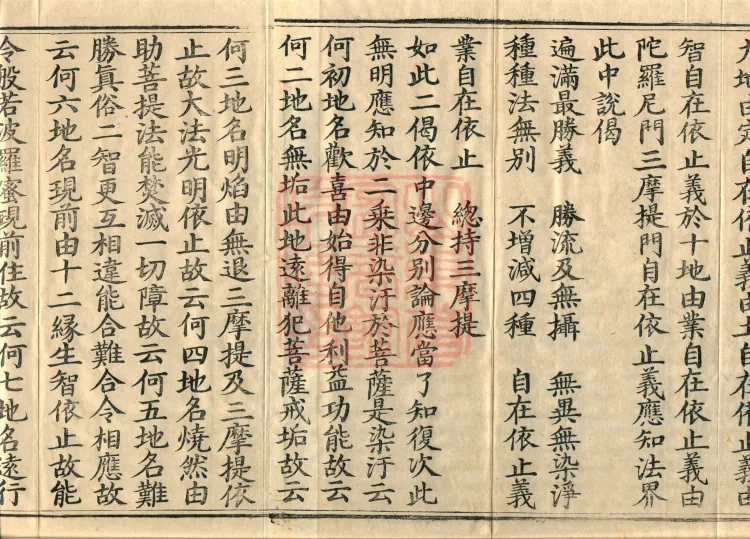 智自在依止義於十地由業自在依止義由
陀羅尼門三摩提門自在依止義應知法界
此中說偈
遍滿最勝義　勝流及無攝　無異無染淨
種種法無別　不增減四種　自在依止義
業自在依止　總持三摩提
如此二偈依中邊分別論應當了知復次此
無明應知於二乘非染汙於菩薩是染汙云
何初地名歡喜由始得自他利益功能故云
何二地名無垢此地遠離犯菩薩戒垢故云
何三地名明焰由無退三摩提及三摩提依
止故大法光明依止故云何四地名燒然由
助菩提法能焚滅一切障故云何五地名難
勝真俗二智更互相違能合難合令相應故
云何六地名現前由十二緣生智依止故能
令般若波羅蜜現前住故云何七地名遠行